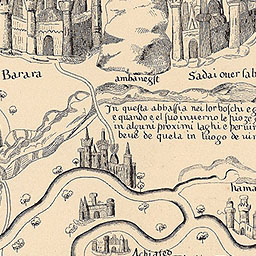 Barara
ambanegst
Sadai over sab
In questa abbassia nei lor boschi e g
e quando e el suo inverno le pioze
in alguni proximi laghi e per un
beve de quela in luogo de vin
hama
Achiaseo